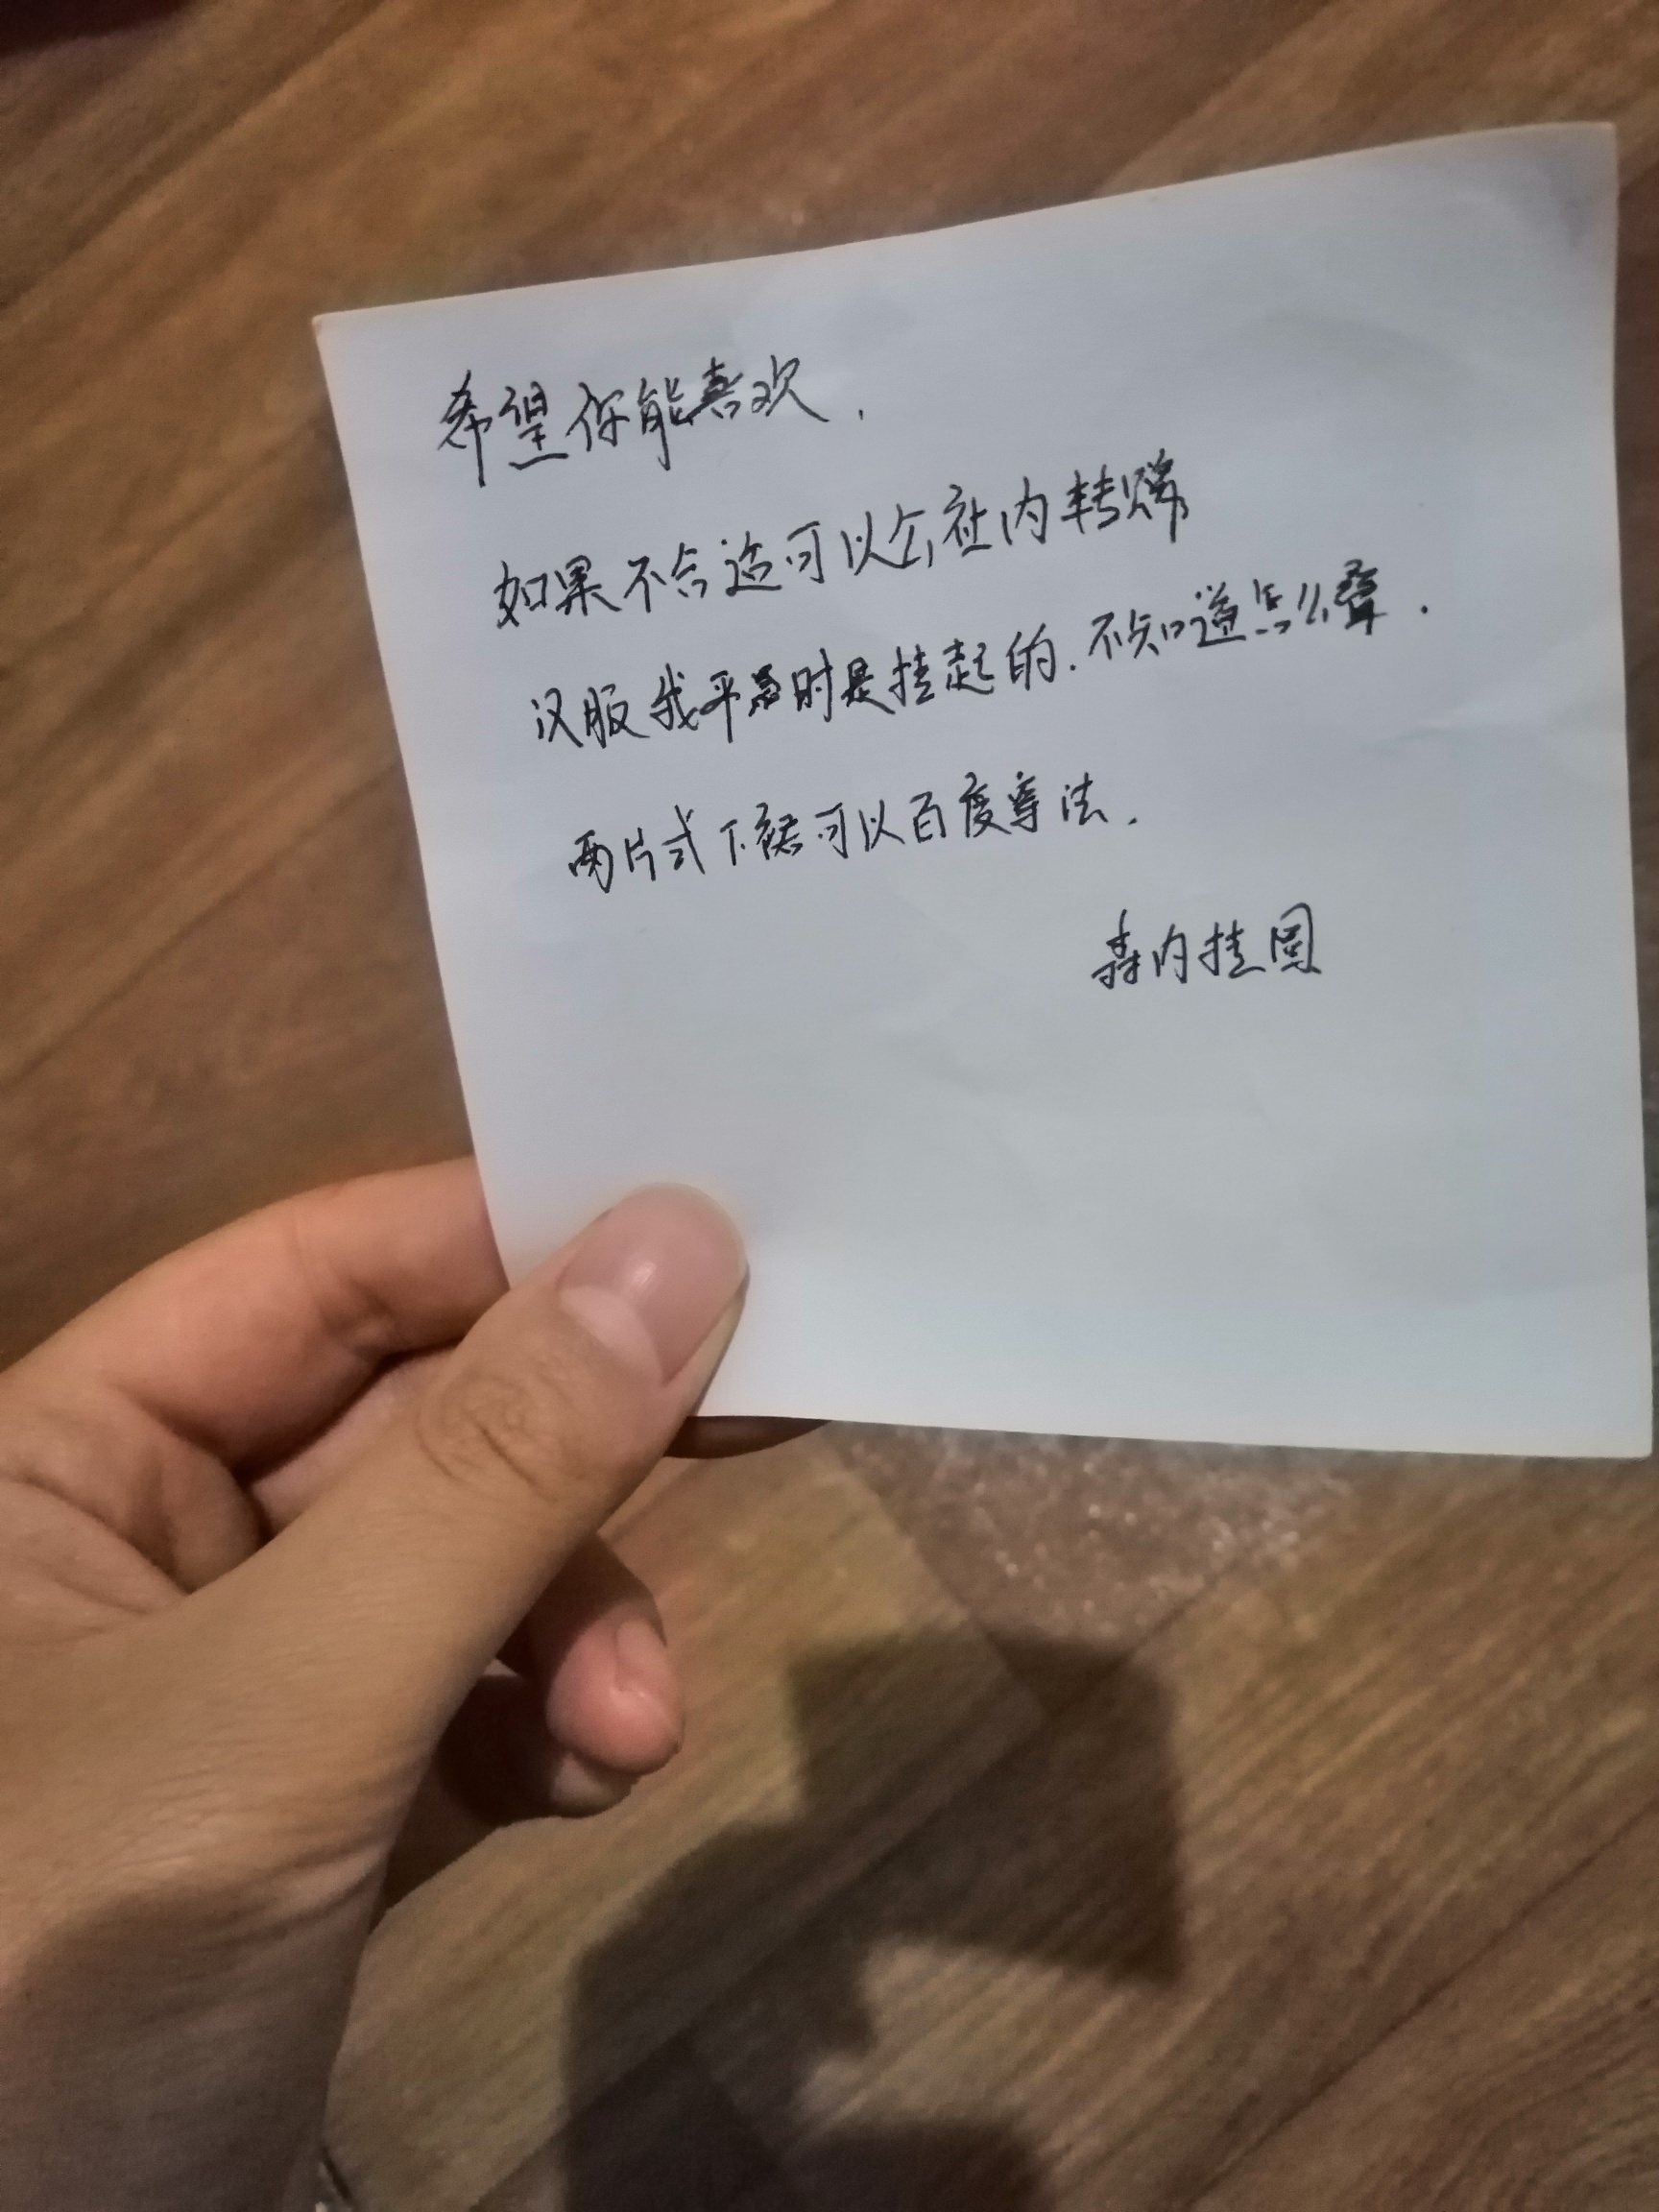 希望你能喜欢.
如果不合适可以公社内转赠
汉服我平时是挂起的.不知道怎么叠.
两片式下裙可以百度穿法.
森内挂圆